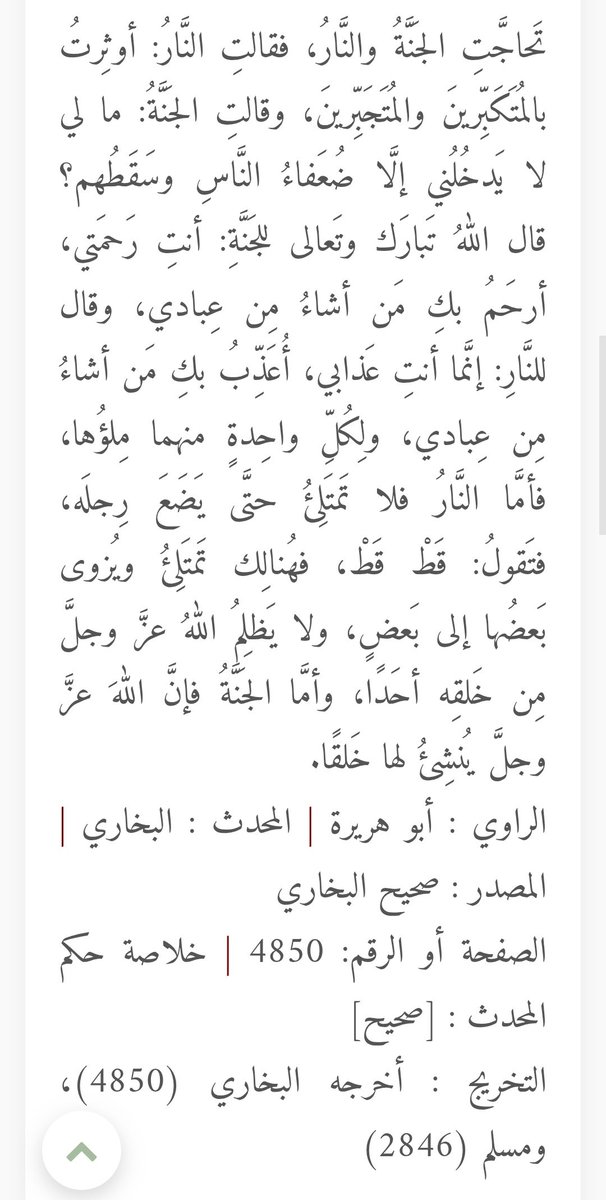 تَحاجَّتِ الجَنَّةُ والنَّارُ، فقالتِ النَّارُ: أوثِرتُ
بالمُتَكَبِّرينَ والمُتَجَبِّرينَ، وقالتِ الجَنَّةُ: ما لي
لا يَدخُلُني إلَّا ضُعَفاءُ النَّاسِ وسَقَطُهم؟
قال اللهُ تَبارَك وتَعالى للجَنَّةِ: أنتِ رَحمَتي،
أرحَمُ بكِ مَن أشاءُ مِن عِبادي، وقال
للنَّارِ: إنَّما أنتِ عَذابي، أُعَذِّبُ بكِ مَن أشاءُ
مِن عِبادي، ولِكُلِّ واحِدةٍ منهما مِلؤُها،
فأمَّا النَّارُ فلا تَمتَلِئُ حتَّى يَضَعَ رِجلَه،
فتَقولُ: قَطْ قَطْ، فهُنالِك تَمتَلِئُ ويُزوى
بَعضُها إلى بَعضٍ، ولا يَظلِمُ اللهُ عزَّ وجلَّ
مِن خَلقِه أحَدًا، وأمَّا الجَنَّةُ فإنَّ اللهَ عزَّ
وجلَّ يُنشِئُ لها خَلقًا.
الراوي : أبو هريرة | المحدث : البخاري |
المصدر : صحيح البخاري
الصفحة أو الرقم: 4850 | خلاصة حكم
المحدث : [صحيح]
التخريج : أخرجه البخاري (4850)،
ومسلم (2846)